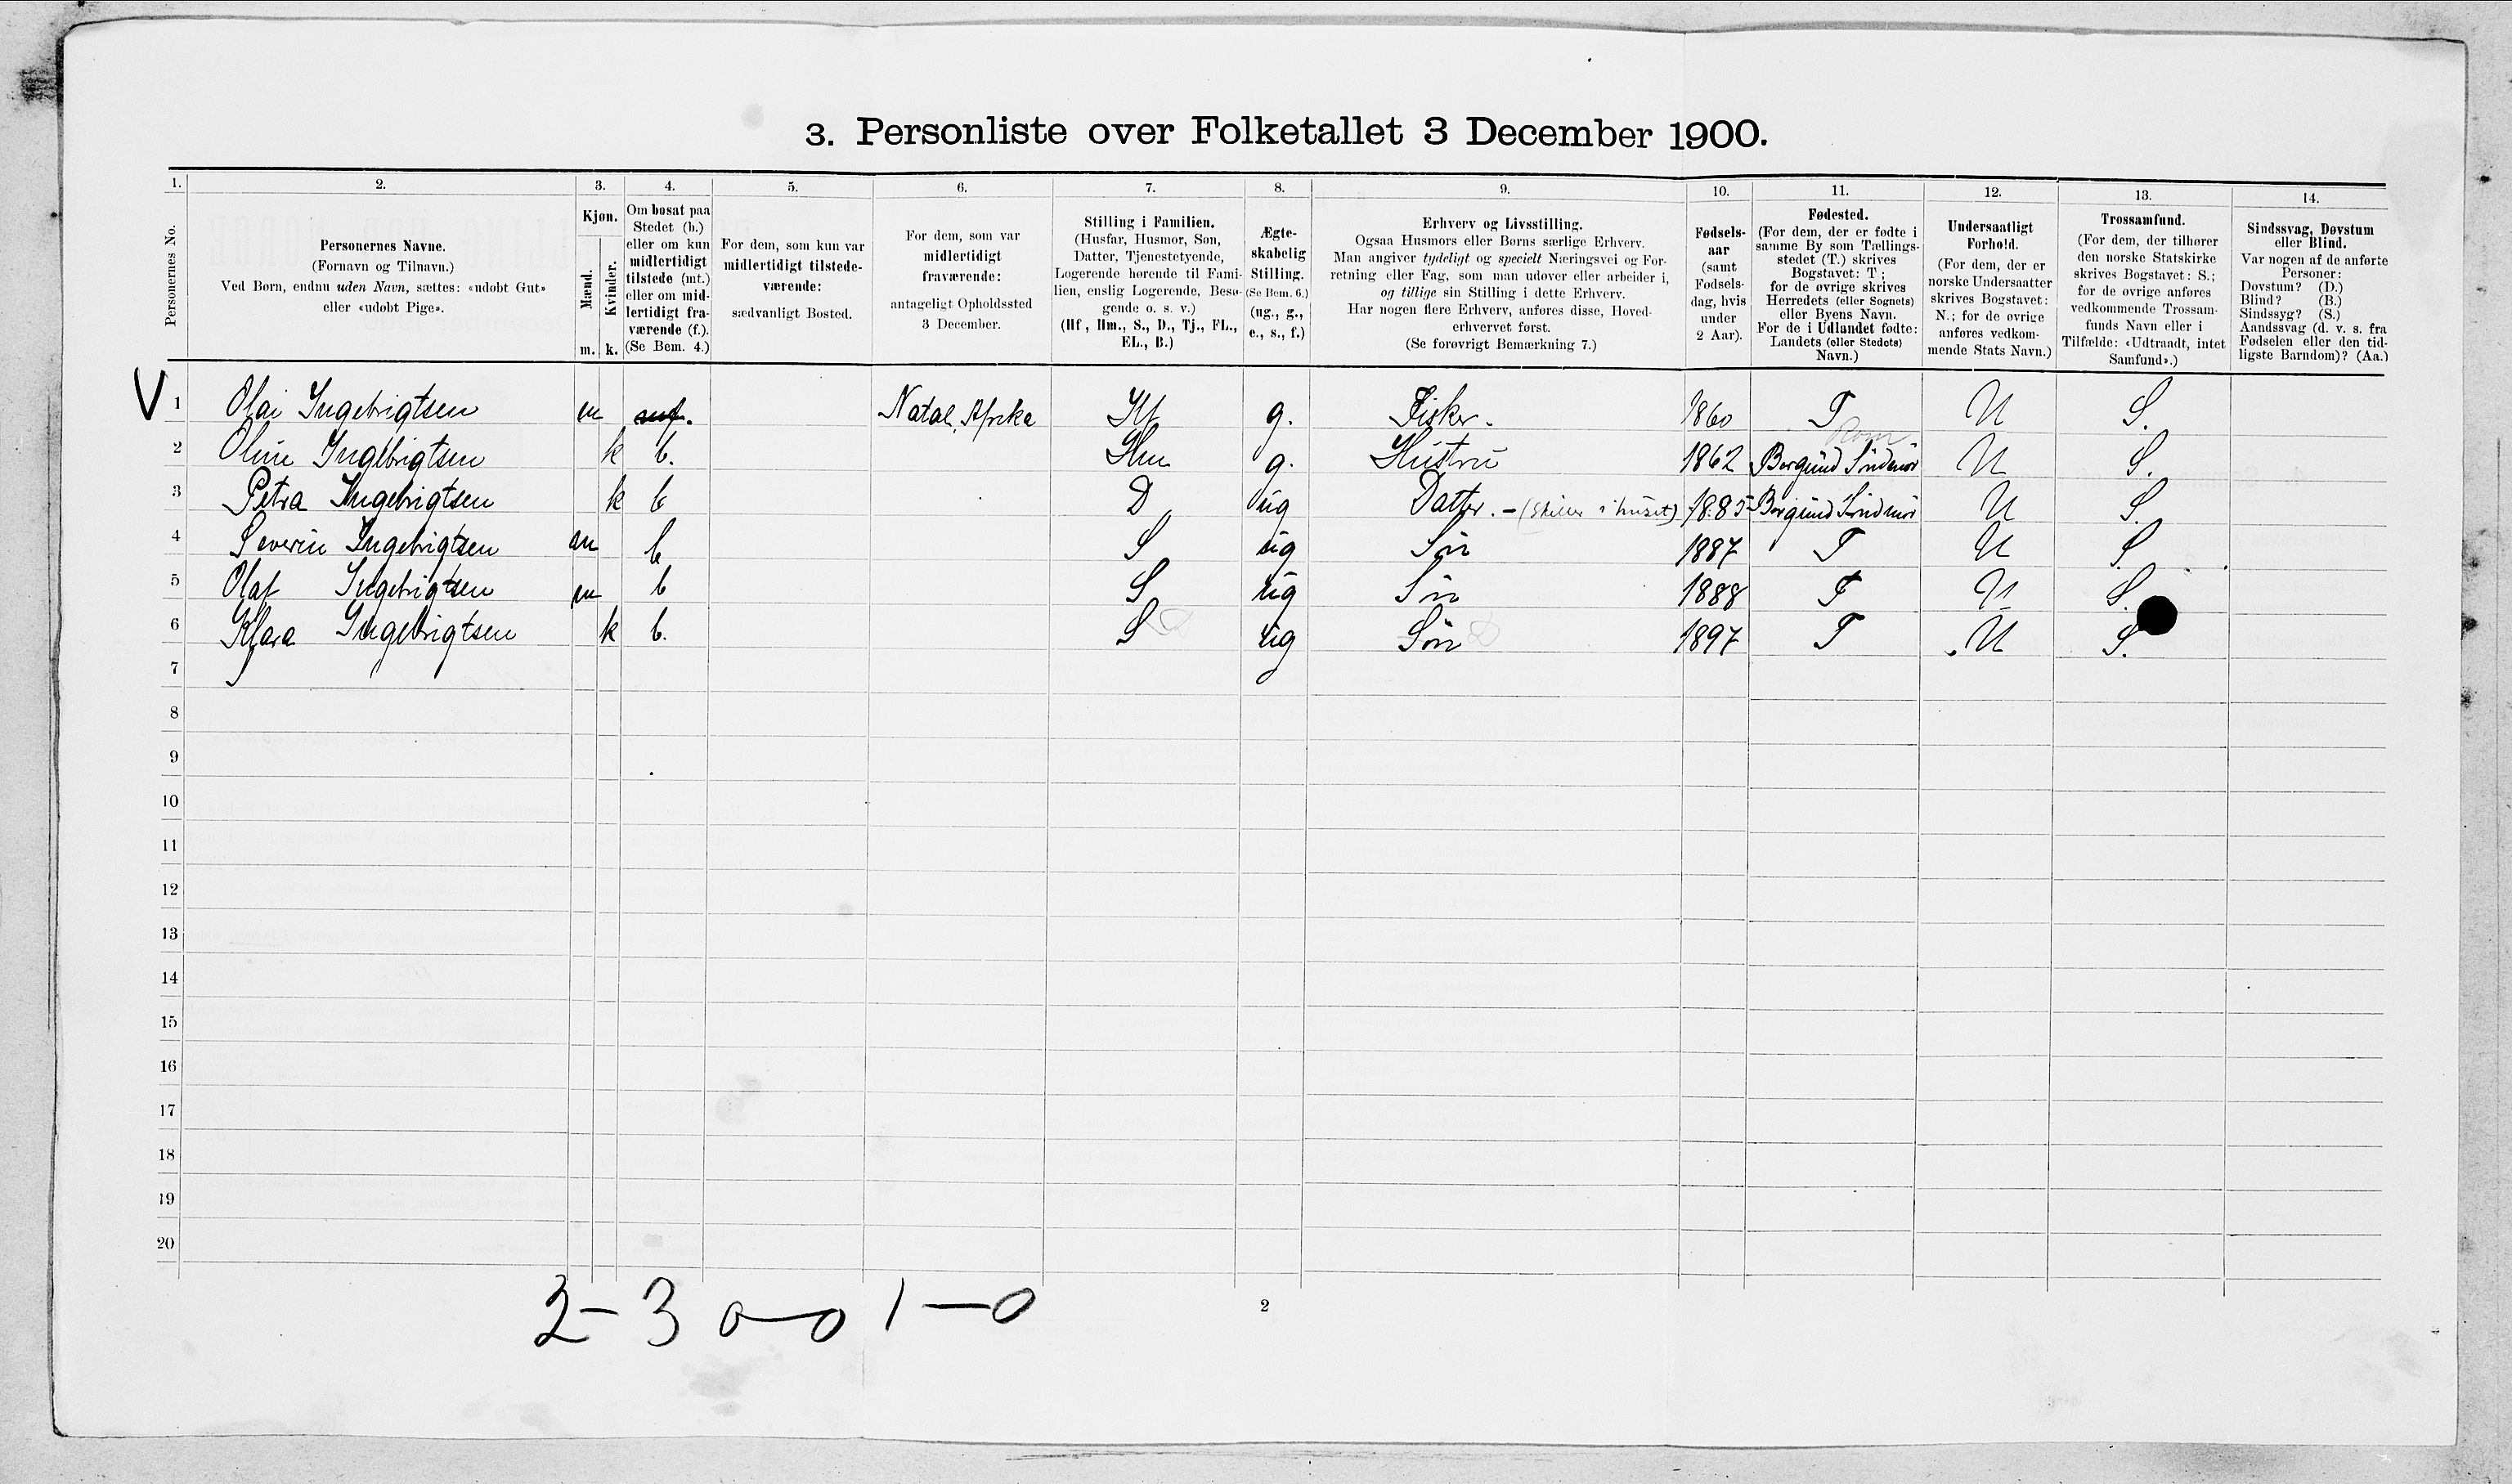 3. Personliste over Folketallet 3 December 1900.
1. 2. 3. 4. 5. 6. 7. 8. 9. 10. 11. 12. 13. 14.
Personernes No.
Personernes Navne.
(Fornavn og Tilnavn.)
Ved Børn, endnu uden Navn, sættes: «udøbt Gut»
eller «udøbt Pige».
Kjøn.
Mænd.
Kvinder.
m. k.
Om bosat paa
Stedet (b.)
eller om kun
midlertidigt
tilstede (mt.)
eller om mid-
lertidigt fra-
værende (f.).
(Se Bem. 4.)
For dem, som kun var
midlertidigt tilstede-
værende:
sædvanligt Bosted.
For dem, som var
midlertidigt
fraværende:
antageligt Opholdssted
3 December.
Stilling i Familien.
(Husfar, Husmor, Søn,
Datter, Tjenestetyende,
Logerende hørende til Fami-
lien, enslig Logerende, Besø-
gende o. s. v.)
(Hf, Hm., S., D., Tj., FL.,
EL., B.)
Ægte-
skabelig
Stilling.
(Se Bem. 6.)
(ug., g.,
e., s., f.)
Erhverv og Livsstilling.
Ogsaa Husmors eller Børns særlige Erhverv.
Man angiver tydeligt og specielt Næringsvei og For-
retning eller Fag, som man udøver eller arbeider i,
og tillige sin Stilling i dette Erhverv.
Har nogen flere Erhverv, anføres disse, Hoved-
erhvervet først.
(Se forøvrigt Bemærkning 7.)
Fødsels-
aar
(samt
Fødsels-
dag, hvis
under
2 Aar).
Fødested.
(For dem, der er fødte i
samme By som Tællings-
stedet (T.) skrives
Bogstavet: T;
for de øvrige skrives
Herredets (eller Sognets)
eller Byens Navn.
For de i Udlandet fødte:
Landets (eller Stedets)
Navn.)
Undersaatligt
Forhold.
(For dem, der er
norske Undersaatter
skrives Bogstavet:
N.; for de øvrige
anføres vedkom-
mende Stats Navn.)
Trossamfund.
(For dem, der tilhører
den norske Statskirke
skrives Bogstavet: S.;
for de øvrige anføres
vedkommende Trossam-
funds Navn eller i
Tilfælde: «Udtraadt, intet
Samfund».)
Sindssvag, Døvstum
eller Blind.
Var nogen af de anførte
Personer:
Døvstum? (D.)
Blind? (B.)
Sindssyg? (S.)
Aandssvag (d. v. s. fra
Fødselen eller den tid-
ligste Barndom)? (Aa.)
V 1 Olai Ingebrigtsen m Natal, Afrika Hf g. Fisker. 1860 T N S.
2 Oline Ingebrigtsen k b. Hm g. Hustru 1862 Borgund Søndmør N S.
3 Petra Ingebrigtsen k b D ug Datter. - (Steller i huset) 1885 Borgund Søndmør N S.
4 Severin Ingebrigtsen m b S ug Søn 1887 T N S.
5 Olaf Ingebrigtsen m b S ug Søn 1888 T N S.
6 Klara Ingebrigtsen k b. S D ug Søn D 1897 T N S.
7
8
9
10
11
12
13
14
15
16
17
18
19
20
2 - 3 0 - 0 1 - 0
2